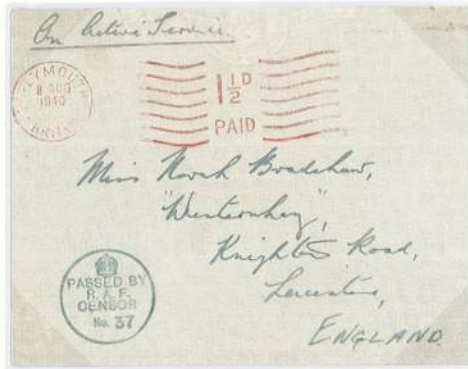 On Active Service.
PLYMOUTH
8 AUG
1940
1½D
PAID
Miss Norah Bradshaw,
"Westernhay",
Knighton Road,
Leicester,
ENGLAND.
PASSED BY
R.A.F.
CENSOR
No. 37